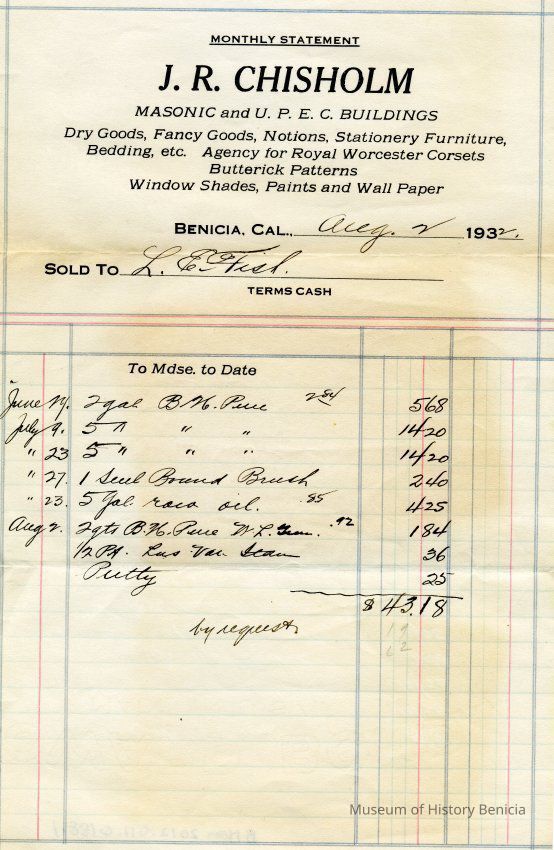 MONTHLY STATEMENT
J. R. CHISHOLM
MASONIC and U. P. E. C. BUILDINGS
Dry Goods, Fancy Goods, Notions, Stationery Furniture,
Bedding, etc. Agency for Royal Worcester Corsets
Butterick Patterns
Window Shades, Paints and Wall Paper
BENICIA, CAL., Aug. 2 1932.
SOLD TO L. E. Fish.
TERMS CASH
To Mdse. to Date
June 2 gal B. H. Pure 2 84 568
July 9. 5 " " " 1420
" 23 5 " " " 1420
" 27. 1 Bound Brush 240
" 23. 5 gal raw oil. .85 425
Aug 2. 2 qts B. H. Pure W. L. .92 184
1/2 Pt. Var. Stain 36
Putty 25
$ 43.18
by request
Museum of History Benicia